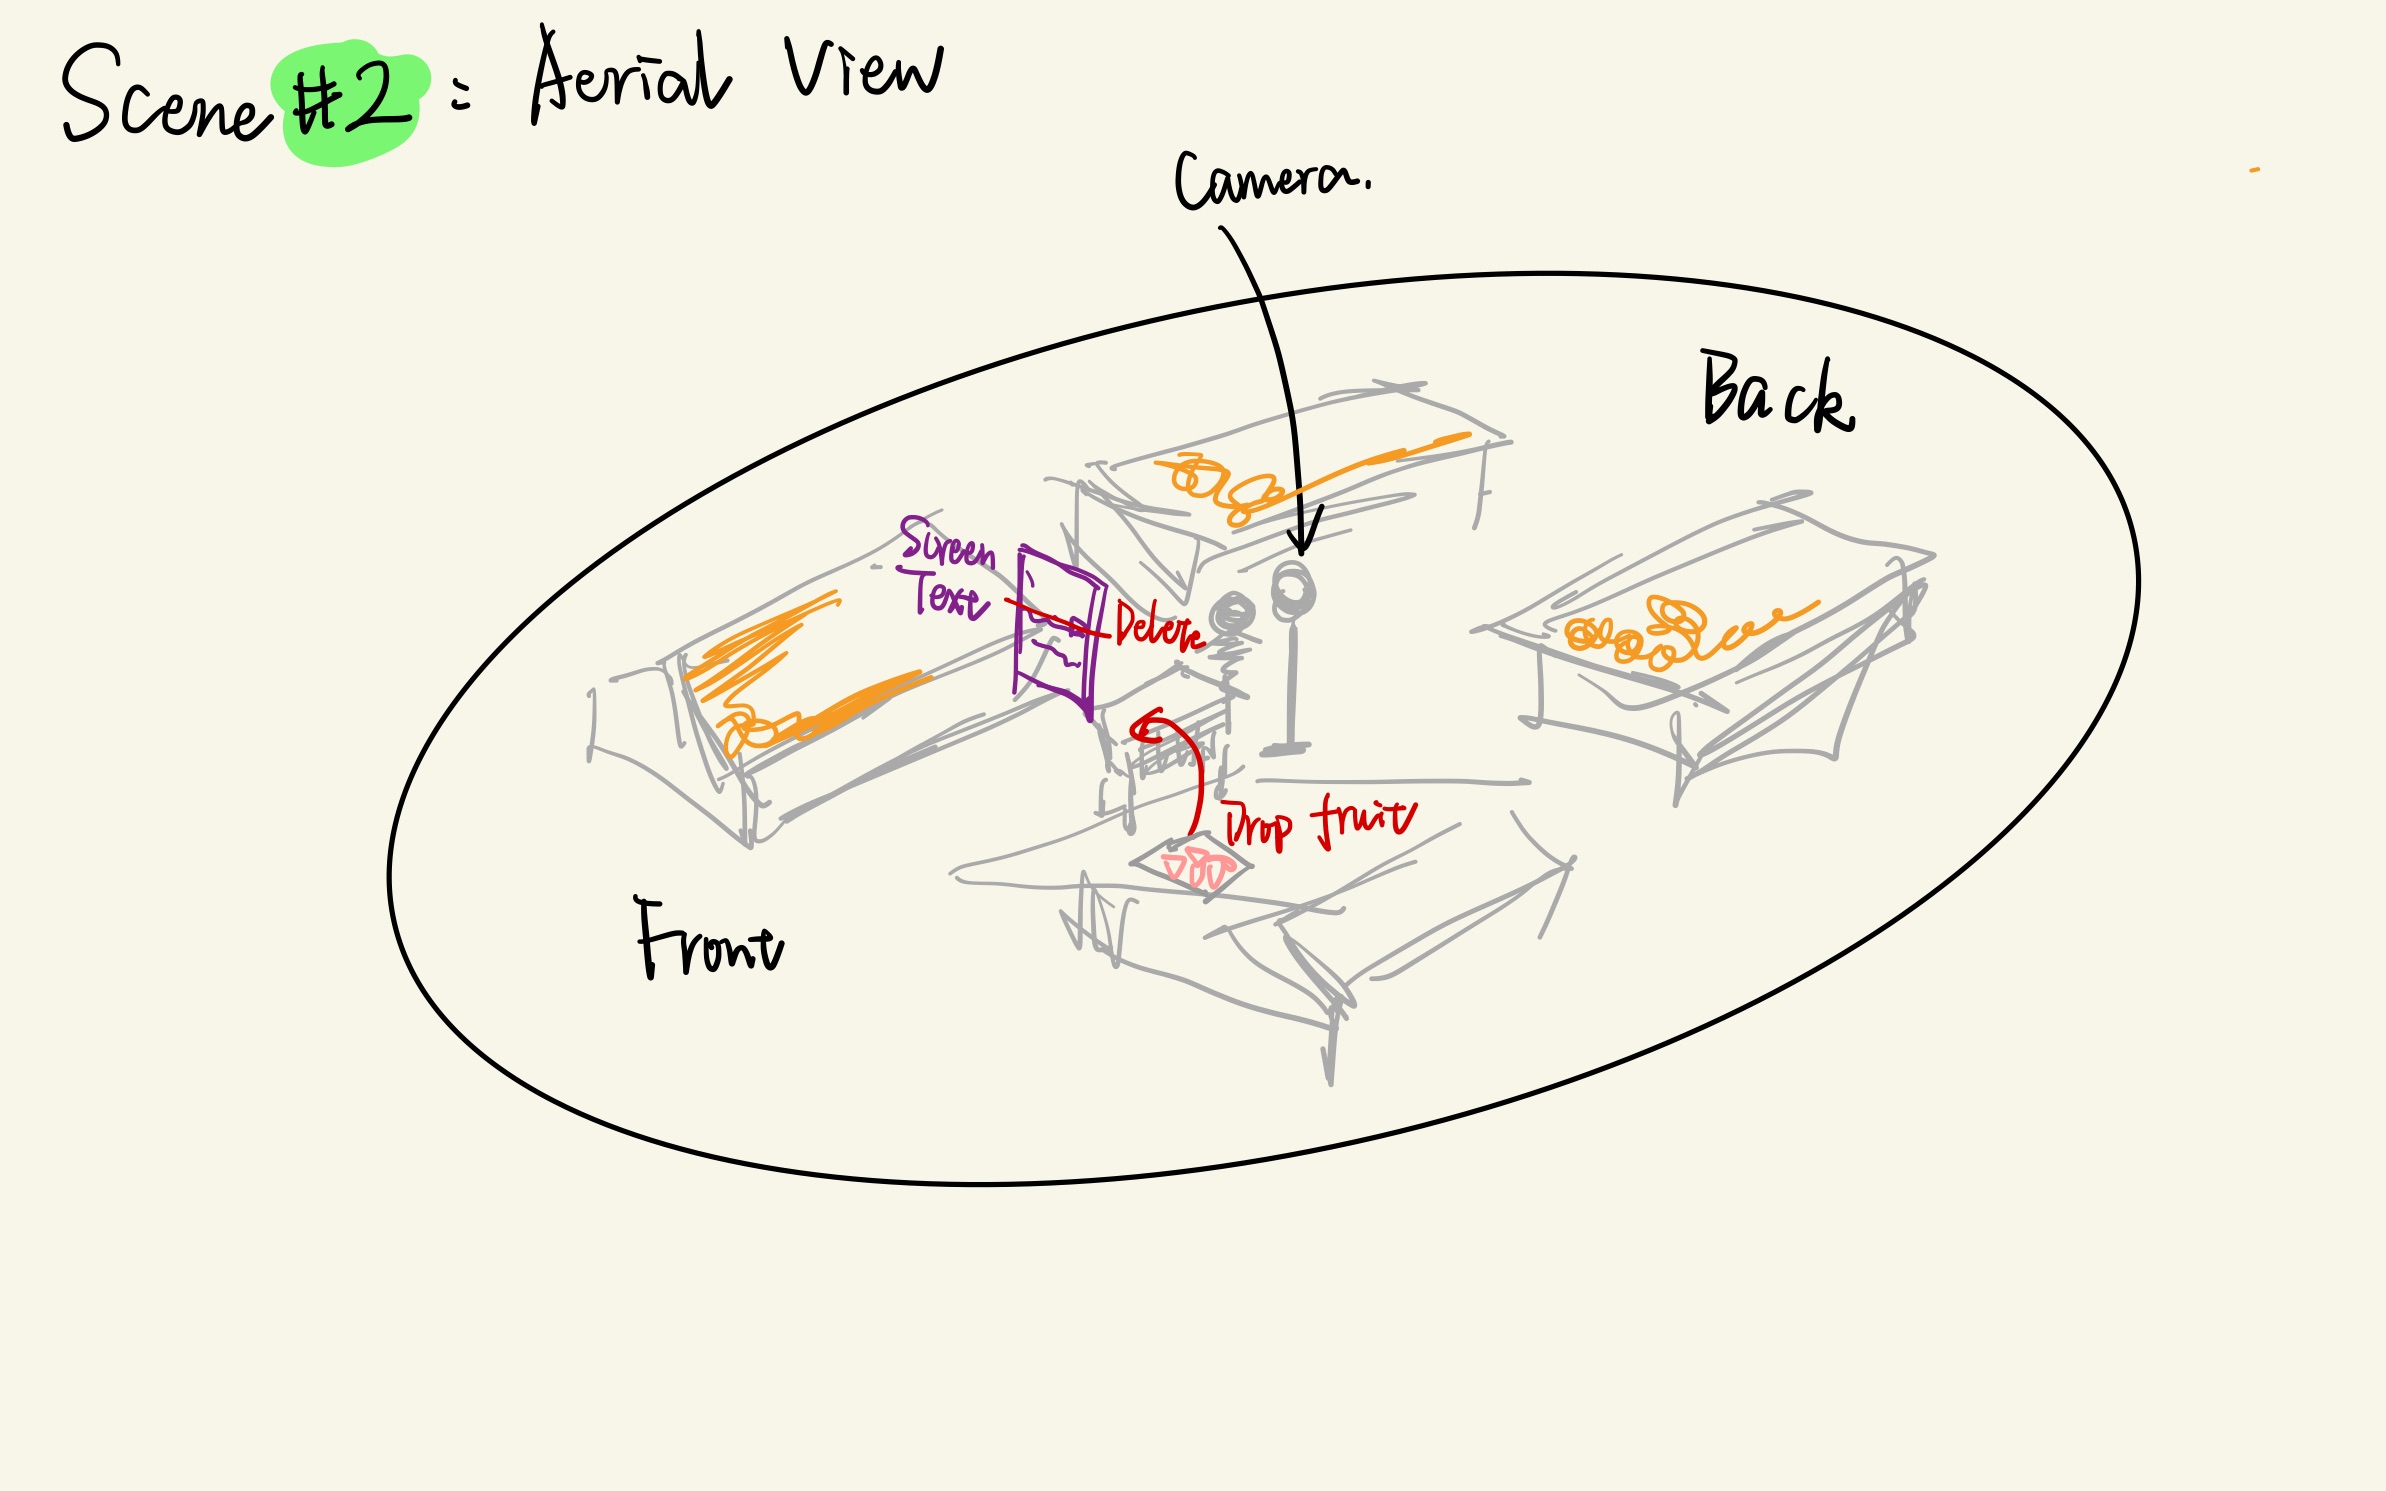 Scene #2 : Aerial View
Camera.
Back.
Screen
Text
Delete
Drop fruit
Front